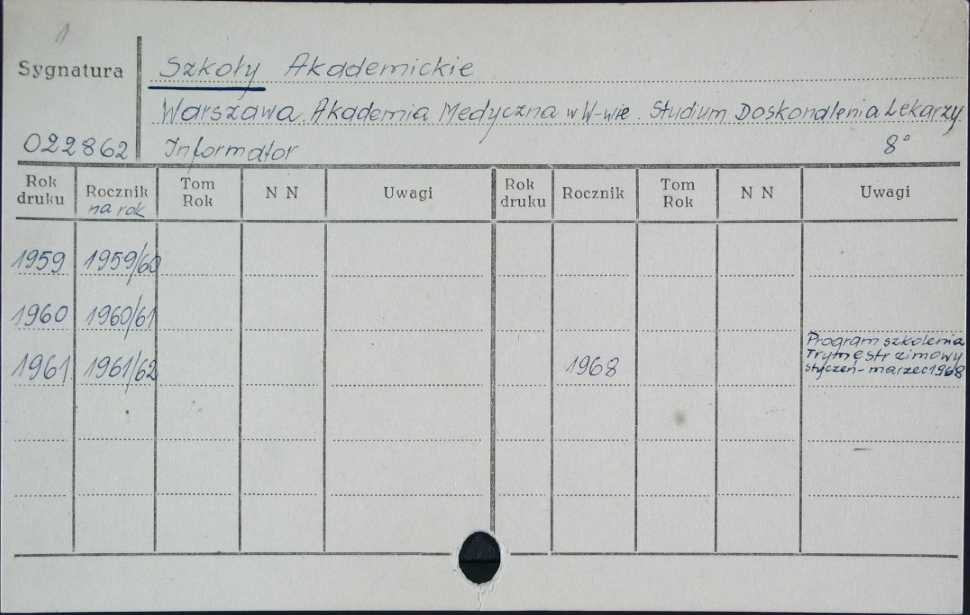 1
Sygnatura
Szkoły Akademickie
Warszawa. Akademia Medyczna w W-wie. Studium Doskonalenia Lekarzy.
022862 Informator 8°
Rok druku Rocznik na rok Tom Rok N N Uwagi Rok druku Rocznik Tom Rok N N Uwagi
1959 1959/60
1960 1960/61
Program szkolenia
Trymestr zimowy
1961 1961/62 1968 styczeń-marzec 1968